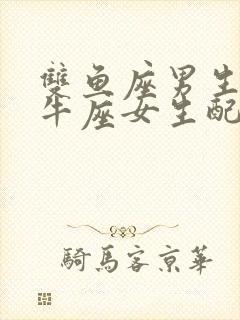 雙魚座男生
牛座女生配
騎馬客京華